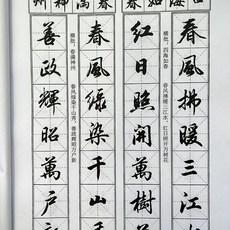 四海如春
春風拂暖三江
横批:四海如春
春风拂暖三江水,红日照开万树花
紅日照開萬樹
春滿神州
春風綠染千山
横批:春满神州
春风绿染千山秀,善政辉昭万户新
善政輝昭萬户